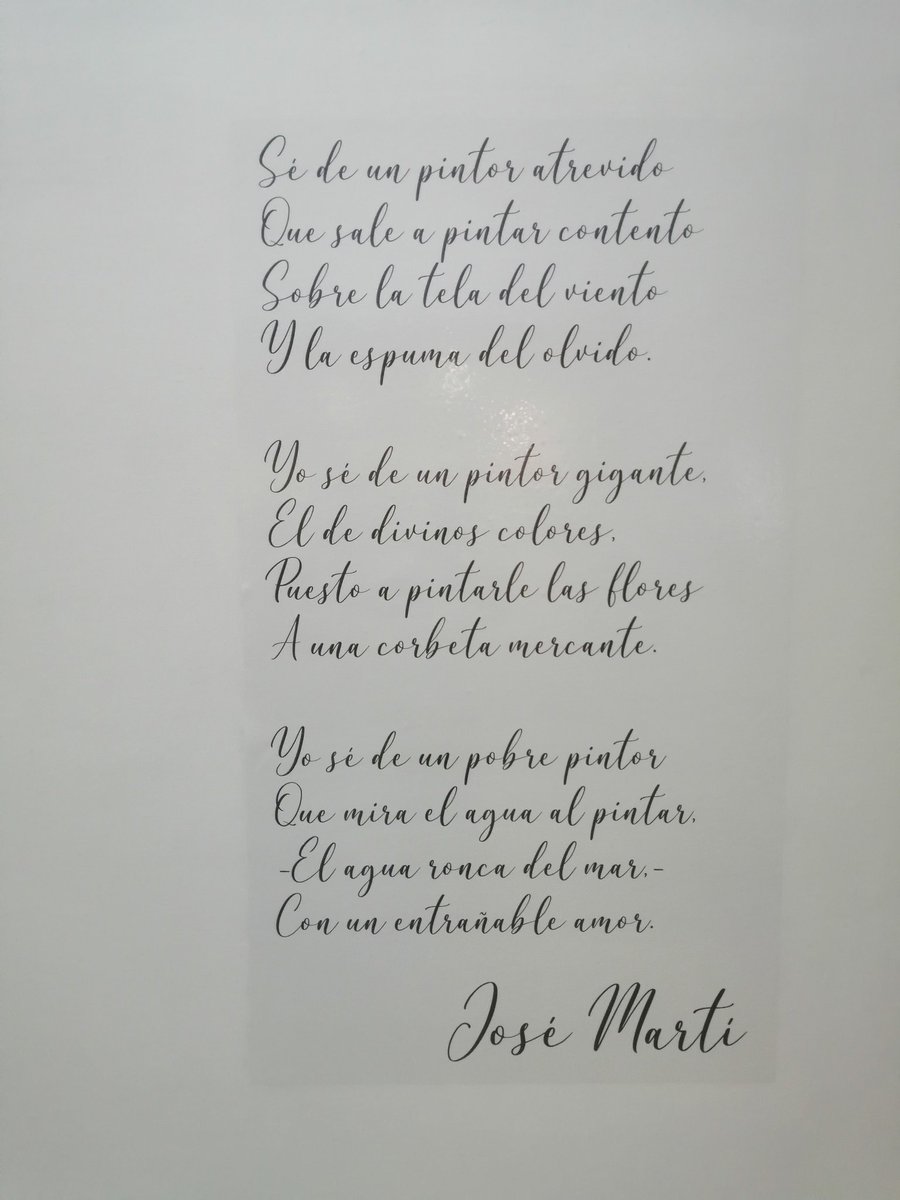 Sé de un pintor atrevido
Que sale a pintar contento
Sobre la tela del viento
Y la espuma del olvido.
Yo sé de un pintor gigante,
El de divinos colores,
Puesto a pintarle las flores
A una corbeta mercante.
Yo sé de un pobre pintor
Que mira el agua al pintar,
-El agua ronca del mar,-
Con un entrañable amor.
José Martí